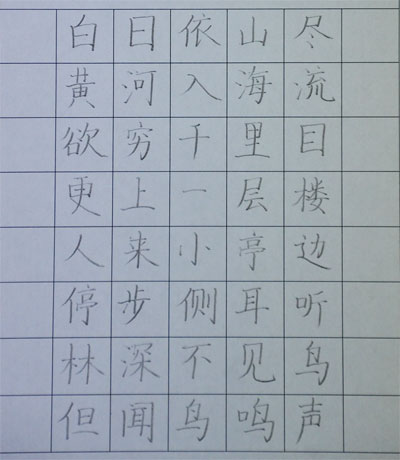 白日依山尽
黄河入海流
欲穷千里目
更上一层楼
人来小亭边
停步侧耳听
林深不见鸟
但闻鸟鸣声